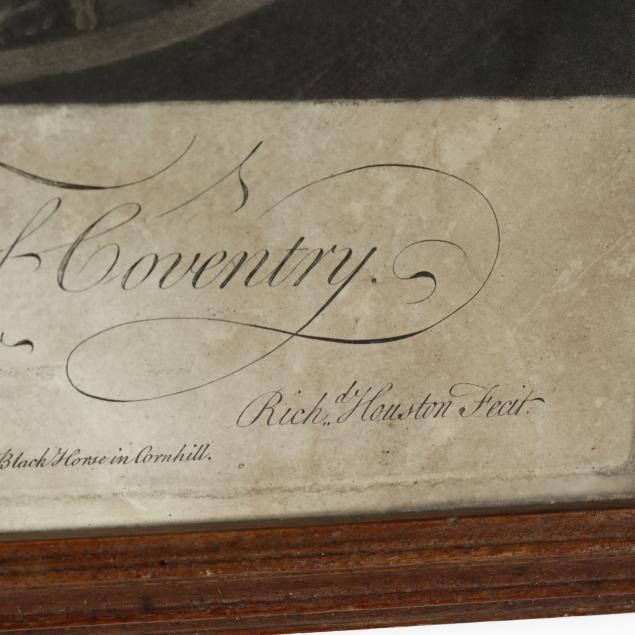 of Coventry.
Rich,,d Houston Fecit.
Black Horse in Cornhill.